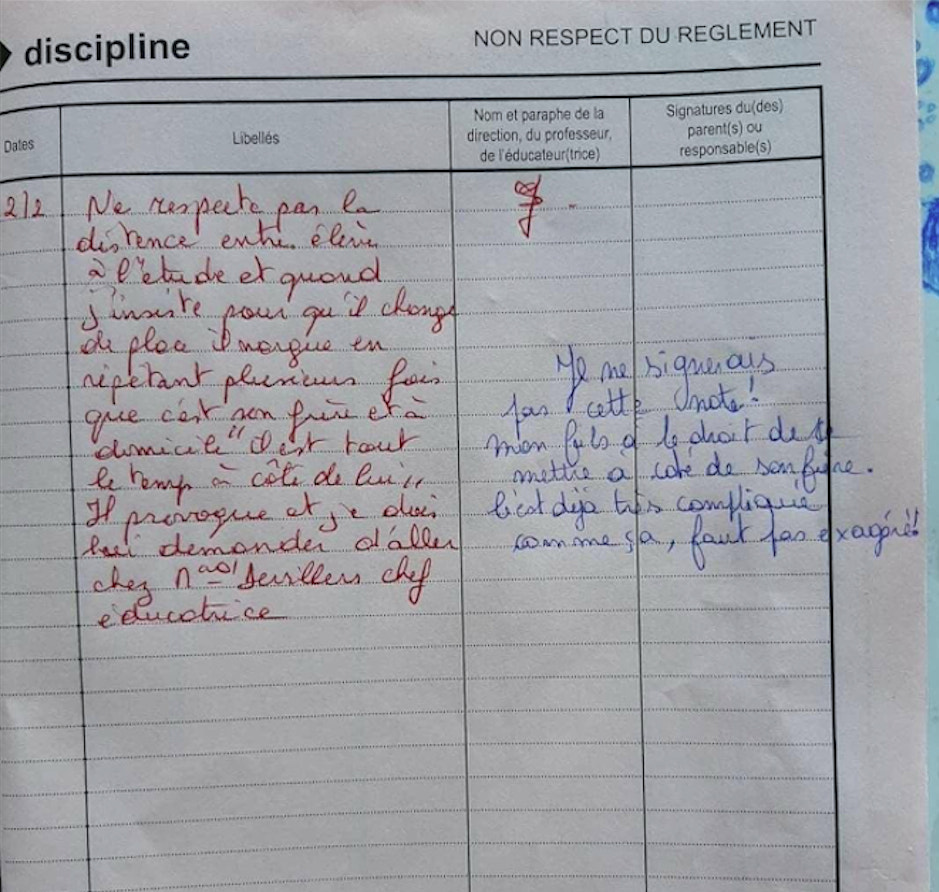 discipline
NON RESPECT DU REGLEMENT
Dates
Libellés
Nom et paraphe de la
direction, du professeur,
de l'éducateur(trice)
Signatures du(des)
parent(s) ou
responsable(s)
2/2
Ne respecte pas la
distence entre élève
à l'étude et quand
j'insiste pour qu'il change
de place il nargue en
répétant plusieurs fois
que c'est son frère et à
domicile "il est tout
le temp à côté de lui"
Il provoque et je dois
lui demander d'aller
chez Devillers chef
éducatrice
Je ne signerais
pas cette note!
mon fils a le droit de se
mettre a coté de son frère.
C'est déjà très compliqué
comme ça, faut pas exagéré!!